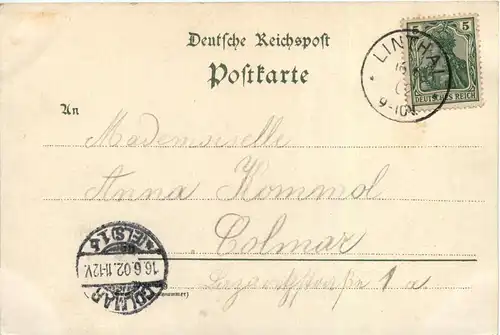 Deutsche Reichspost
Postkarte
5 5
DEUTSCHES REICH
LINTHAL
9-10V.
An
Mademoiselle
Anna Kommol
Colmar
1 a
COLMAR
(ELS) 1.
16.6.02.11-12V.